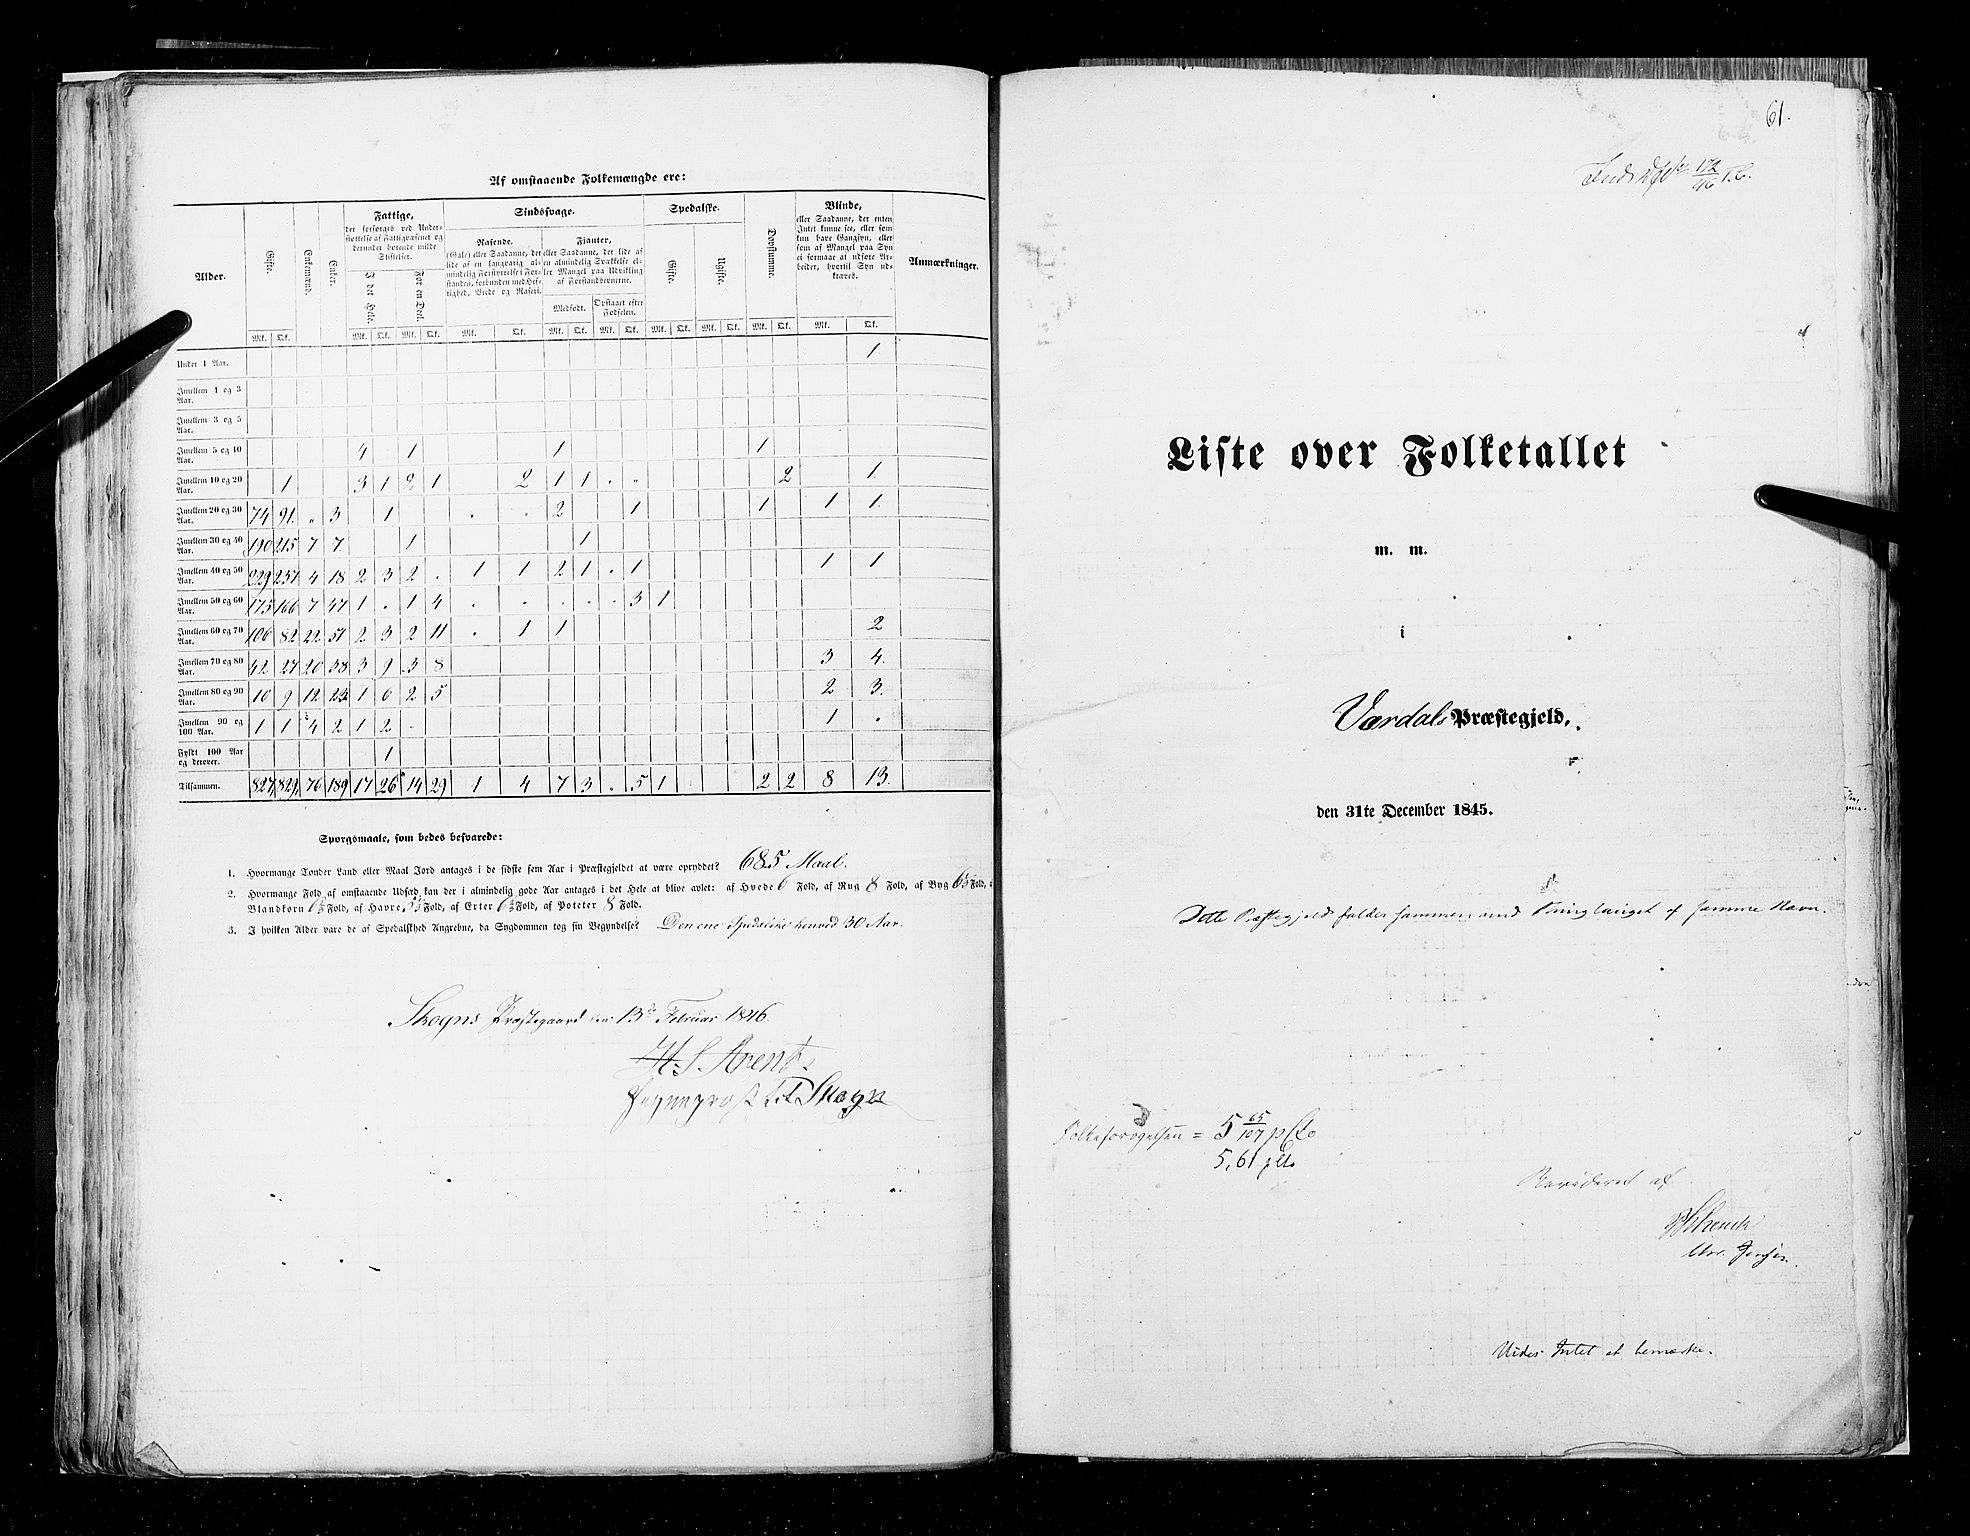 Af omstaaende Folkemængde ere:
Alder. Gifte. Enkemænd. Enker. Fattige, der forsørges ved Understøttelse af Fattigvæsenet og derunder hørende milde Stiftelser. I det Hele. For en Deel. Sindssvage. Rasende. (Gale) eller Saadanne, der lide af en langvarig almindelig Forstyrrelse i Forstanden, forbunden med Heftighed, Vrede og Raseri. Fjanter, eller Saadanne, der lide af en almindelig Svækkelse eller Mangel paa Udvikling af Forstandsevnerne. Medfødt. Opstaaet efter Fødselen. Spedalske. Gifte. Ugifte. Døvstumme. Blinde, eller Saadanne, der enten Intet kunne see, eller som kun have Gangsyn, eller som af Mangel paa Syn ei formaae at udføre Arbeider, hvortil Syn udkræves. Anmærkninger.
Mk. Qk. Mk. Qk. Mk. Qk. Mk. Qk. Mk. Qk. Mk. Qk. Mk. Qk. Mk. Qk. Mk. Qk. Mk. Qk.
Under 1 Aar. 1
Imellem 1 og 3 Aar.
Imellem 3 og 5 Aar.
Imellem 5 og 10 Aar. 4 1 1 1
Imellem 10 og 20 Aar. 1 3 1 2 1 2 1 1 2 1
Imellem 20 og 30 Aar. 74 91 " 3 1 2 1 1 1 1
Imellem 30 og 40 Aar. 190 215 7 7 1 1
Imellem 40 og 50 Aar. 229 237 4 18 2 3 2 . 1 1 2 1 . 1 1 1
Imellem 50 og 60 Aar. 175 166 7 47 1 . 1 4 3 1
Imellem 60 og 70 Aar. 106 82 22 51 2 3 2 11 . 1 1 2
Imellem 70 og 80 Aar. 42 27 20 38 3 9 3 8 3 4
Imellem 80 og 90 Aar. 10 9 12 23 1 6 2 5 2 3
Imellem 90 og 100 Aar. 1 1 4 2 1 2 1
Fyldt 100 Aar og derover. 1
Tilsammen. 827 829 76 189 17 26 14 29 1 4 7 3 . 5 1 2 2 8 13
Spørgsmaale, som bedes besvarede:
1. Hvormange Tønder Land eller Maal Jord antages i de sidste fem Aar i Præstegjeldet at være opryddet? 685 Maal.
2. Hvormange Fold af omstaaende Udsæd kan der i almindelig gode Aar antages i det Hele at blive avlet: af Hvede 6 Fold, af Rug 8 Fold, af Byg Fold, af
Blandkorn Fold, af Havre Fold, af Erter Fold, af Poteter 8 Fold.
3. I hvilken Alder vare de af Spedalskhed Angrebne, da Sygdommen tog sin Begyndelse? Den ene Spedalske henved 30 Aar.
Skogns Præstegaard den 13de Februar 1846
H. S. Arents
Sognepræst til Skogn
61.
Liste over Folketallet
m. m.
i
Værdals Præstegjeld,
den 31te December 1845.
Dette Præstegjeld falder sammen med Thinglauget af samme Navn.
Folkeforøgelsen = 5 65/107 pCto
5,61 pCto
Revideret af
Vides Intet at bemærke.